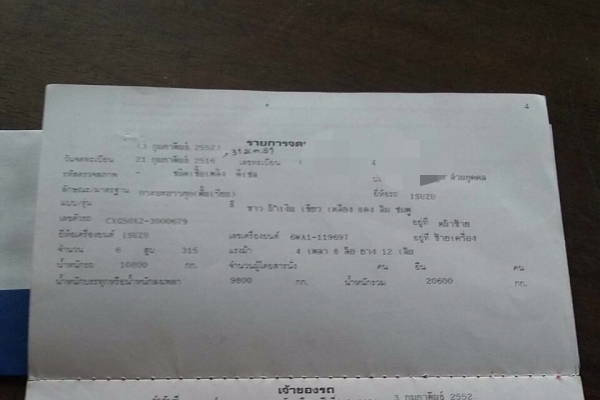 4
รายการจด
(3 กุมภาพันธ์ 2552)
วันจดทะเบียน 21 กุมภาพันธ์ 2516 เลขทะเบียน 4
ชนิดเชื้อเพลิง ดีเซล ส่วนบุคคล
ลักษณะ/มาตรฐาน ยี่ห้อรถ ISUZU
แบบ/รุ่น สี ขาว น้ำเงิน เขียว เหลือง แดง ส้ม ชมพู
เลขตัวรถ CXG50X2-3000629 อยู่ที่ หน้าซ้าย
ยี่ห้อเครื่องยนต์ ISUZU เลขเครื่องยนต์ 6WA1-119697 อยู่ที่ ซ้ายเครื่อง
จำนวน 6 สูบ 315 แรงม้า 4 เพลา 8 ล้อ ยาง 12 เส้น
น้ำหนักรถ 10800 กก. จำนวนผู้โดยสารนั่ง คน ยืน คน
น้ำหนักบรรทุกหรือน้ำหนักลงเพลา 9800 กก. น้ำหนักรวม 20600 กก.
เจ้าของรถ
3 กุมภาพันธ์ 2552